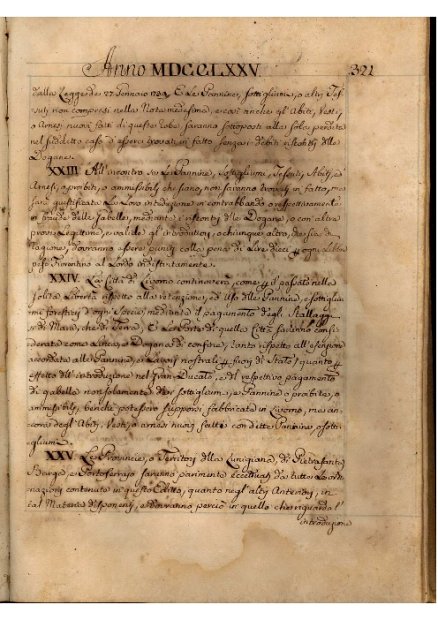 Anno MDCCLXXV. 321
dalla Legge de 27. Gennaio E Le Pannine, sottigliumi, o altri Tes-
suti non compresi nella Nota medesima, e così anche gl'Abiti, Vesti, o
Arnesi nuovi fatti di queste robe, saranno sottoposti alla sola perdita
nel suddetto caso d'essere trovati in fatto senza i debiti riscontri delle
Dogane.
XXIII. All'incontro se Le Pannine, Sottigliumi, Tessuti, Abiti, ed
Arnesi, o proibiti, o ammissibili che siano, non saranno trovati in fatto, ma
sarà giustificata La Loro introduzione in contrabbando, o respettivamente
in frode delle Gabelle, mediante i riscontri delle Dogane, o con altre
prove Legittime, e valide, gl'introduttori, o chiunque altro, che sia di
ragione, dovranno essere puniti colla pena di Lire dieci per ogni Libbra
peso Fiorentino al Lordo indistintamente.
XXIV. La Città di Livorno continoverà, come per il passato nella
solita Libertà rispetto alla retenzione, ed Uso delle Pannine, e sottigliu-
mi forestieri d'ogni specie, mediante il pagamento degli Stallaggi
di Mare, che di Terra, E Le Porte di quella Città saranno consi-
derate come altre Dogane di confine, tanto rispetto all'esenzioni
accordate alle Pannine, e Lavori nostrali per fuori di Stato, quanto per
effetto dell'introduzione nel Gran-Ducato, e del respettivo pagamento
di gabella non solamente dei sottigliumi, e Pannine o proibite, o
ammissibili, benchè potessero supporsi fabbricate in Livorno, ma an-
cora degl'Abiti, Vesti, o arnesi nuovi fatti con dette Pannine, o sotti-
gliumi.
XXV. Le Provincie, o Territori della Lunigiana, di Pietrasanta
Barga, e Portoferraio saranno parimente eccettuati da tutte Le ordi-
nazioni contenute in questo Editto, quanto negl'altri Anteriori, in
tal Materia disponenti, e dovranno perciò in quello che riguarda l'
introduzione